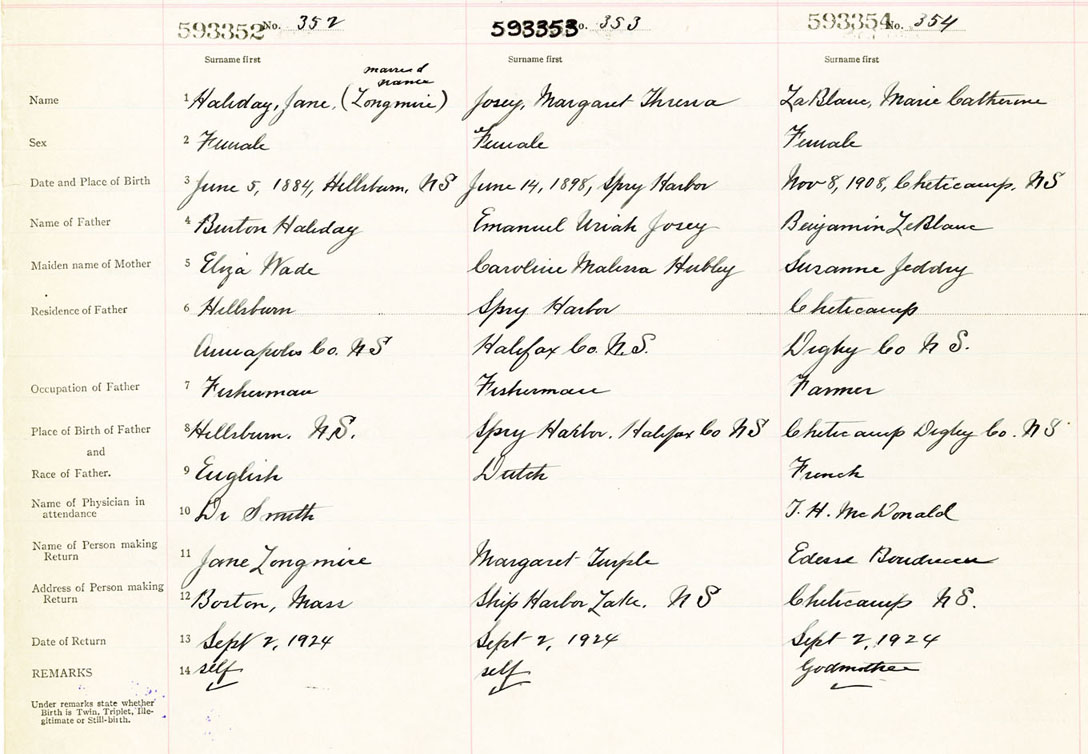 593352 No. 352 593353 No. 353 593354 No. 354
Surname first Surname first Surname first
married
name
Name 1 Haliday, Jane, (Longmire) Josey, Margaret Thresa LaBlanc, Marie Catherine
Sex 2 Female Female Female
Date and Place of Birth 3 June 5, 1884, Hillsburn, NS June 14, 1898, Spry Harbor Nov 8, 1908, Cheticamp, NS
Name of Father 4 Burton Haliday Emanuel Uriah Josey Benjamin LeBlanc
Maiden name of Mother 5 Eliza Wade Caroline Malissa Hubley Suzanne Jeddry
Residence of Father 6 Hillsburn Spry Harbor Cheticamp
Annapolis Co. NS Halifax Co. N.S. Digby Co NS.
Occupation of Father 7 Fisherman Fisherman Farmer
Place of Birth of Father 8 Hillsburn. N.S. Spry Harbor. Halifax Co NS Cheticamp Digby Co. NS
and
Race of Father. 9 English Dutch French
Name of Physician in
attendance 10 Dr Smith T. H. McDonald
Name of Person making
Return 11 Jane Longmire Margaret Turple Boudreau
Address of Person making
Return 12 Boston, Mass Ship Harbor Lake. NS Cheticamp NS.
Date of Return 13 Sept 2, 1924 Sept 2, 1924 Sept 2, 1924
REMARKS 14 self self Godmother
Under remarks state whether
Birth is Twin, Triplet, Ille-
gitimate or Still-birth.